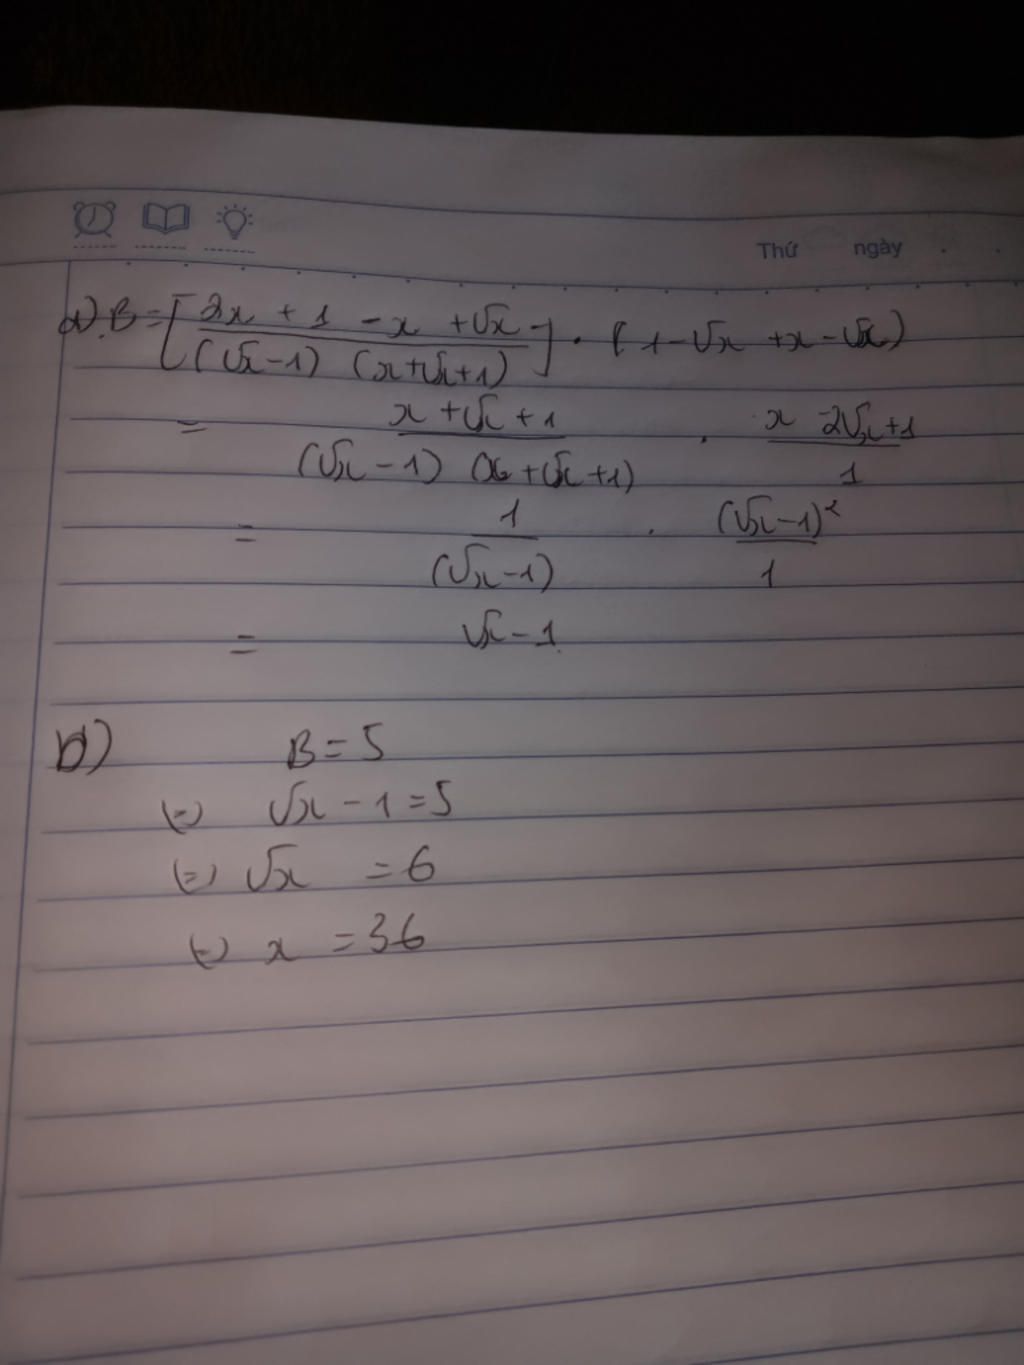 Thứ ngày
a) B = [ (2x + 1 - x + √x) / ((√x - 1) (x + √x + 1)) ] . (1 - √x + x - √x)
= (x + √x + 1) / ((√x - 1) (x + √x + 1)) . (x - 2√x + 1) / 1
= 1 / (√x - 1) . (√x - 1)² / 1
= √x - 1
b) B = 5
(=) √x - 1 = 5
(=) √x = 6
(=) x = 36